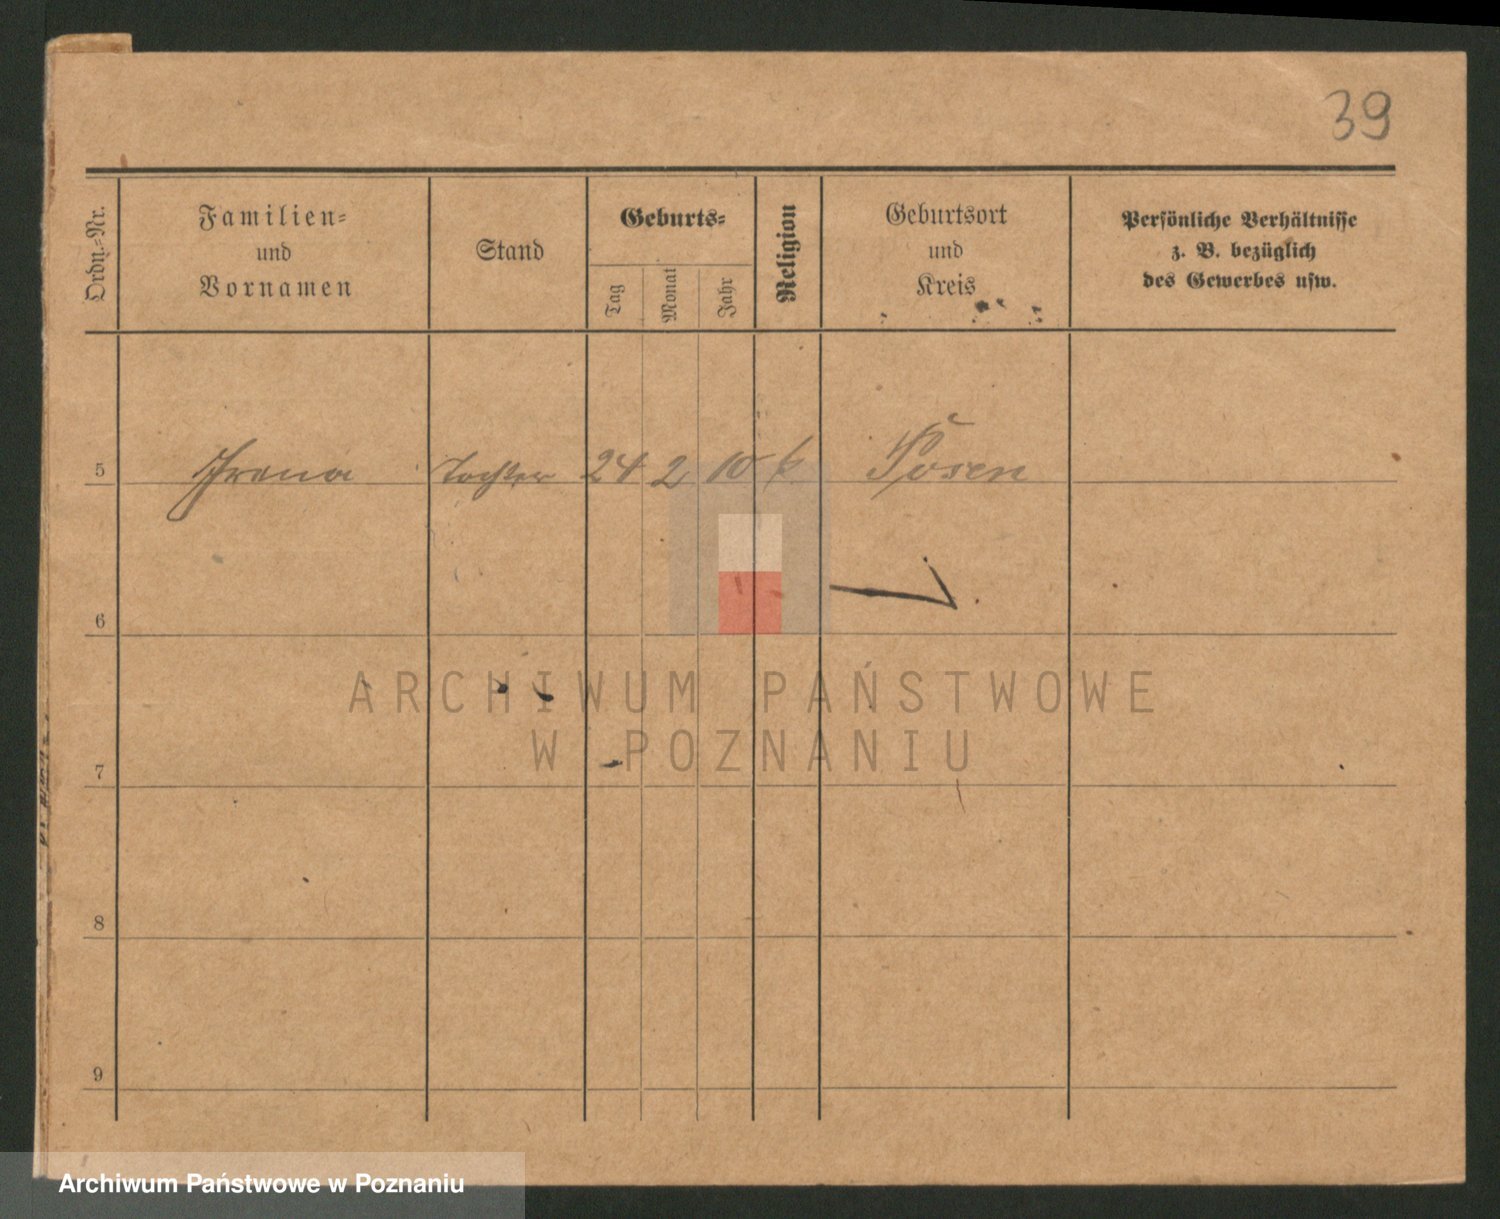 39
Ordn.=Nr.
Familien=
und
Vornamen
Stand
Geburts=
Tag
Monat
Jahr
Religion
Geburtsort
und
Kreis
Persönliche Verhältnisse
z. B. bezüglich
des Gewerbes usw.
5 Irena Tochter 24 2 10 k Posen
6
7
8
9
ARCHIWUM PAŃSTWOWE
W POZNANIU
Archiwum Państwowe w Poznaniu